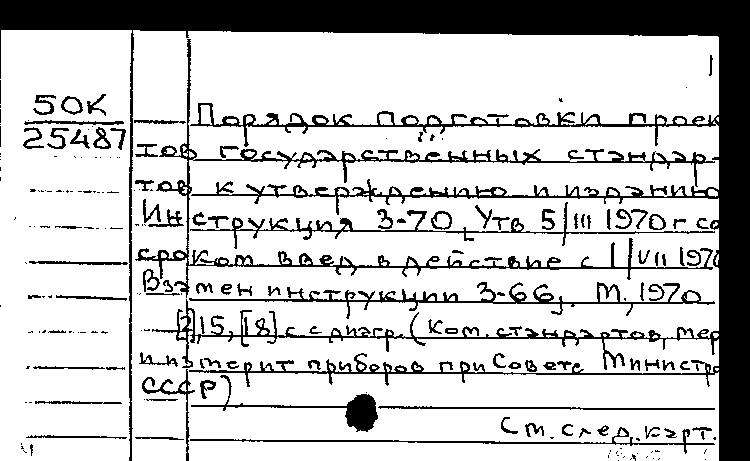 50К
25487
Порядок подготовки проек
тов государственных стандар-
тов к утверждению и изданию
Инструкция 3-70, Утв 5/III 1970 г со
сроком введ в действие с 1/VII 1970
Взамен инструкции 3-66]. М, 1970
[2], 15, [18] с с диагр. (Ком. стандартов, мер
и измерит приборов при Совете Министро
СССР)
См. след. карт.